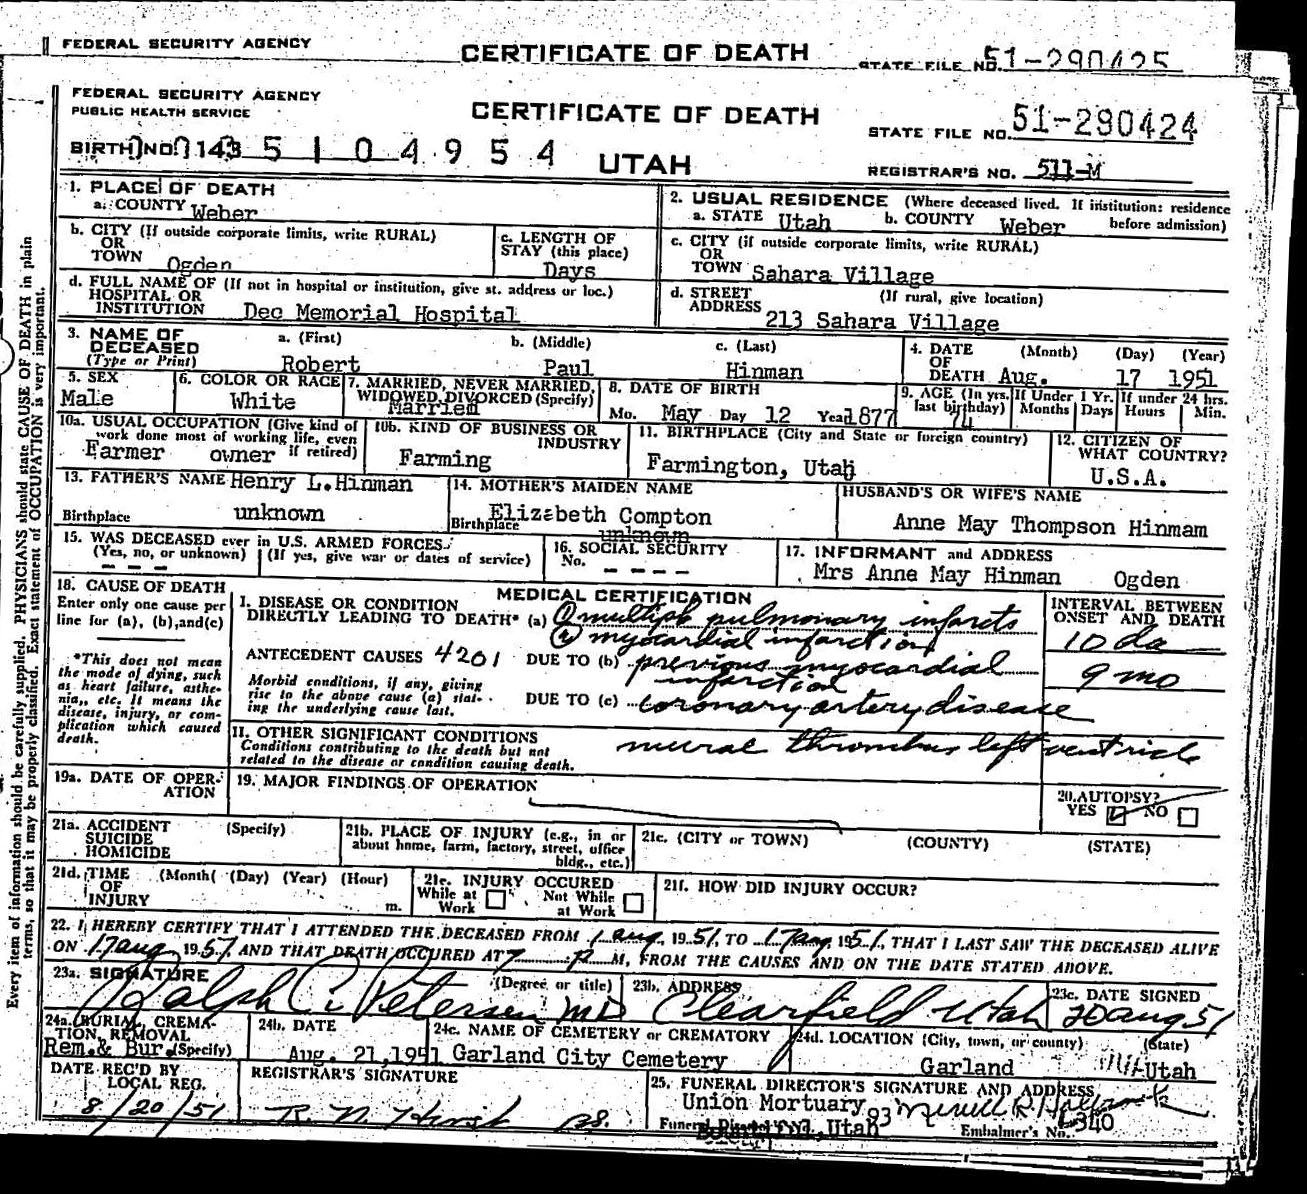 FEDERAL SECURITY AGENCY
CERTIFICATE OF DEATH
STATE FILE NO. 51-290425
FEDERAL SECURITY AGENCY
PUBLIC HEALTH SERVICE
CERTIFICATE OF DEATH
STATE FILE NO. 51-290424
BIRTH NO. 143 5 1 0 4 9 5 4
UTAH
REGISTRAR'S NO. 511-M
1. PLACE OF DEATH
a. COUNTY Weber
2. USUAL RESIDENCE (Where deceased lived. If institution: residence
a. STATE Utah b. COUNTY Weber before admission)
b. CITY (If outside corporate limits, write RURAL)
OR
TOWN Ogden
c. LENGTH OF
STAY (this place)
Days
c. CITY (if outside corporate limits, write RURAL)
OR
TOWN Sahara Village
d. FULL NAME OF (If not in hospital or institution, give st. address or loc.)
HOSPITAL OR
INSTITUTION Dee Memorial Hospital
d. STREET (If rural, give location)
ADDRESS
213 Sahara Village
3. NAME OF
DECEASED
(Type or Print)
a. (First) b. (Middle) c. (Last)
Robert Paul Hinman
4. DATE (Month) (Day) (Year)
OF
DEATH Aug. 17 1951
5. SEX
Male
6. COLOR OR RACE
White
7. MARRIED, NEVER MARRIED,
WIDOWED, DIVORCED (Specify)
Married
8. DATE OF BIRTH
Mo. May Day 12 Year 1877
9. AGE (In yrs.
last birthday)
74
If Under 1 Yr.
Months Days
If under 24 hrs.
Hours Min.
10a. USUAL OCCUPATION (Give kind of
work done most of working life, even
if retired)
Farmer owner
10b. KIND OF BUSINESS OR
INDUSTRY
Farming
11. BIRTHPLACE (City and State or foreign country)
Farmington, Utah
12. CITIZEN OF
WHAT COUNTRY?
U.S.A.
13. FATHER'S NAME Henry L. Hinman
Birthplace unknown
14. MOTHER'S MAIDEN NAME
Elizabeth Compton
Birthplace unknown
HUSBAND'S OR WIFE'S NAME
Anne May Thompson Hinmam
15. WAS DECEASED ever in U.S. ARMED FORCES
(Yes, no, or unknown) (If yes, give war or dates of service)
- - -
16. SOCIAL SECURITY
No. - - - -
17. INFORMANT and ADDRESS
Mrs Anne May Hinman Ogden
18. CAUSE OF DEATH
Enter only one cause per
line for (a), (b), and (c)
*This does not mean
the mode of dying, such
as heart failure, asthe-
nia, etc. It means the
disease, injury, or com-
plication which caused
death.
MEDICAL CERTIFICATION
I. DISEASE OR CONDITION
DIRECTLY LEADING TO DEATH* (a) ① multiple pulmonary infarcts
② myocardial infarction
ANTECEDENT CAUSES 4201 DUE TO (b) previous myocardial
infarction
Morbid conditions, if any, giving
rise to the above cause (a) stat-
ing the underlying cause last.
DUE TO (c) coronary artery disease
INTERVAL BETWEEN
ONSET AND DEATH
10 da
9 mo
II. OTHER SIGNIFICANT CONDITIONS
Conditions contributing to the death but not
related to the disease or condition causing death.
mural thrombus left ventricle
19a. DATE OF OPER-
ATION
19. MAJOR FINDINGS OF OPERATION
20. AUTOPSY?
YES ☑ NO ☐
21a. ACCIDENT (Specify)
SUICIDE
HOMICIDE
21b. PLACE OF INJURY (e.g., in or
about home, farm, factory, street, office
bldg., etc.)
21c. (CITY or TOWN) (COUNTY) (STATE)
21d. TIME (Month( (Day) (Year) (Hour)
OF
INJURY m.
21e. INJURY OCCURED
While at Work ☐ Not While at Work ☐
21f. HOW DID INJURY OCCUR?
22. I HEREBY CERTIFY THAT I ATTENDED THE DECEASED FROM 1 aug, 1951, TO 17 aug, 1951, THAT I LAST SAW THE DECEASED ALIVE
ON 17 aug 1951, AND THAT DEATH OCCURED AT 7 P M, FROM THE CAUSES AND ON THE DATE STATED ABOVE.
23a. SIGNATURE (Degree or title)
Ralph C. Petersen MD
23b. ADDRESS
Clearfield Utah
23c. DATE SIGNED
20 aug 51
24a. BURIAL, CREMA-
TION, REMOVAL
(Specify)
Rem. & Bur.
24b. DATE
Aug. 21, 1951
24c. NAME OF CEMETERY or CREMATORY
Garland City Cemetery
24d. LOCATION (City, town, or county) (State)
Garland Utah
DATE REC'D BY
LOCAL REG.
8/20/51
REGISTRAR'S SIGNATURE
25. FUNERAL DIRECTOR'S SIGNATURE AND ADDRESS
Union Mortuary 93
Bountiful, Utah
Embalmer's No. 340
Every item of information should be carefully supplied. PHYSICIANS should state CAUSE OF DEATH in plain
terms, so that it may be properly classified. Exact statement of OCCUPATION is very important.